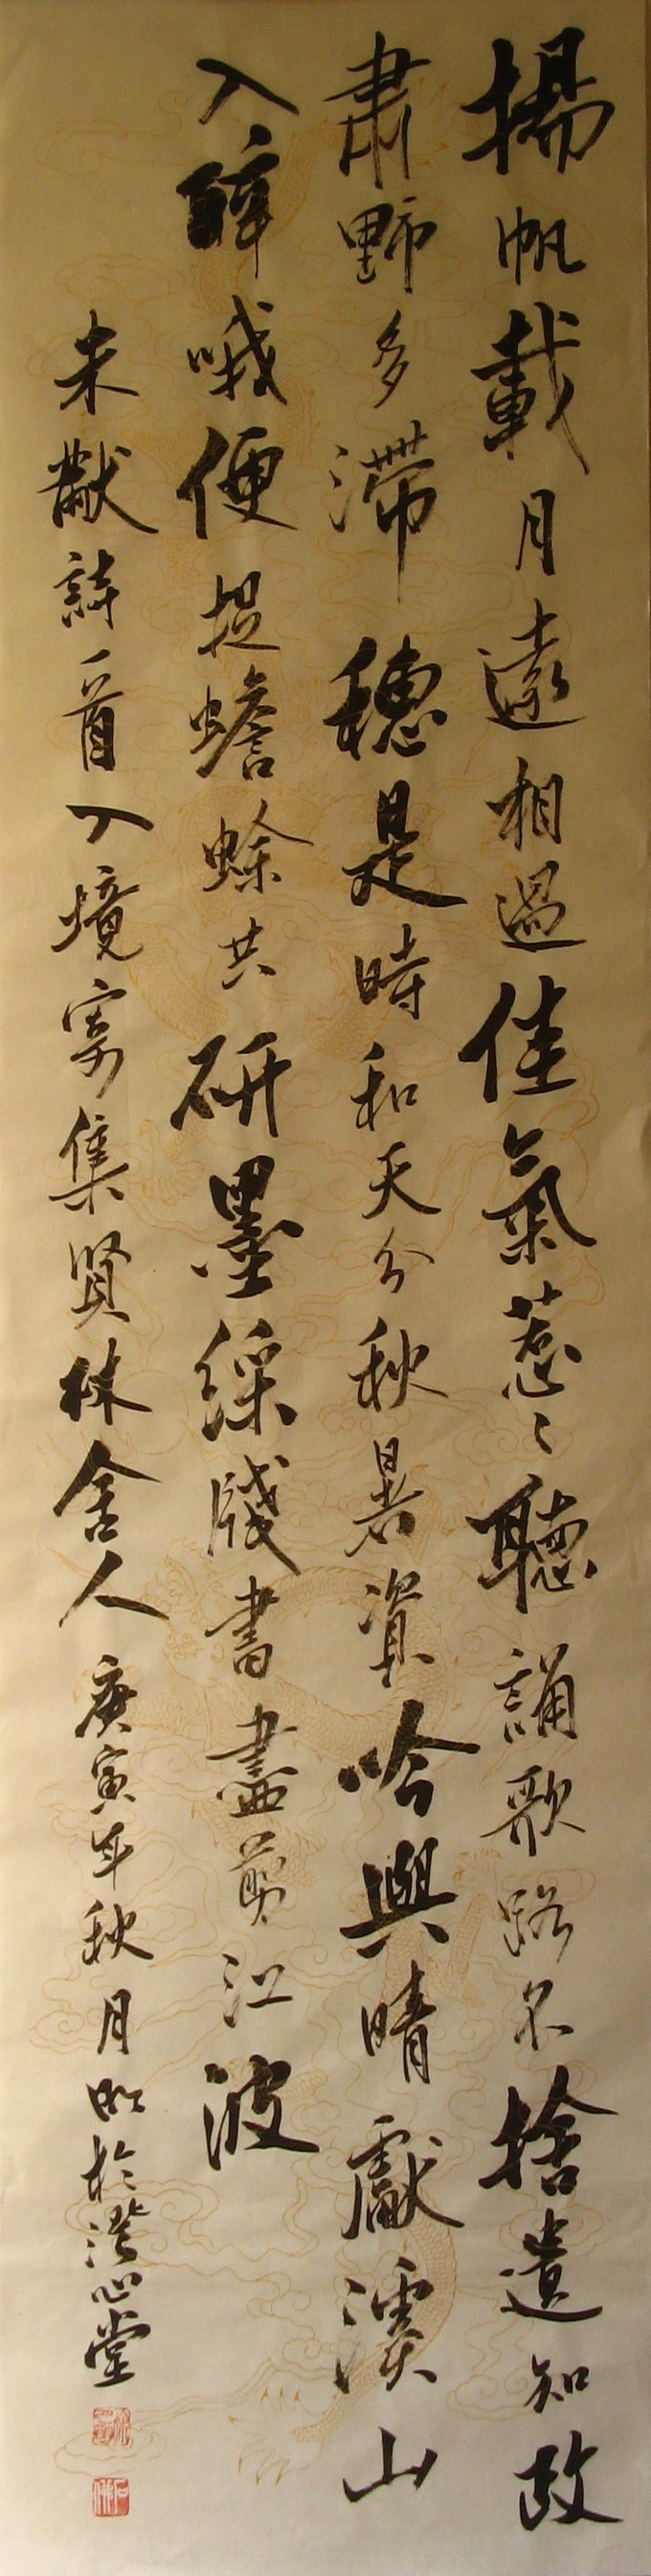 揚帆載月遠相過佳氣葱々聽誦歌路不捨遺知政
肅野多滯穗是時和天分秋暑資吟興晴獻溪山
入醉哦便捉蟾蜍共研墨綵牋書盡剪江波
米黻詩一首入境寄集賢林舍人庚寅年秋月於澄心堂